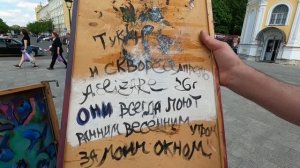 ТУКА
И СКВОРЕЦ АПРЕЛЬ
26г
ОНИ ВСЕГДА ПОЮТ
РАННИМ ВЕСЕННИМ УТРОМ
ЗА МОИМ ОКНОМ